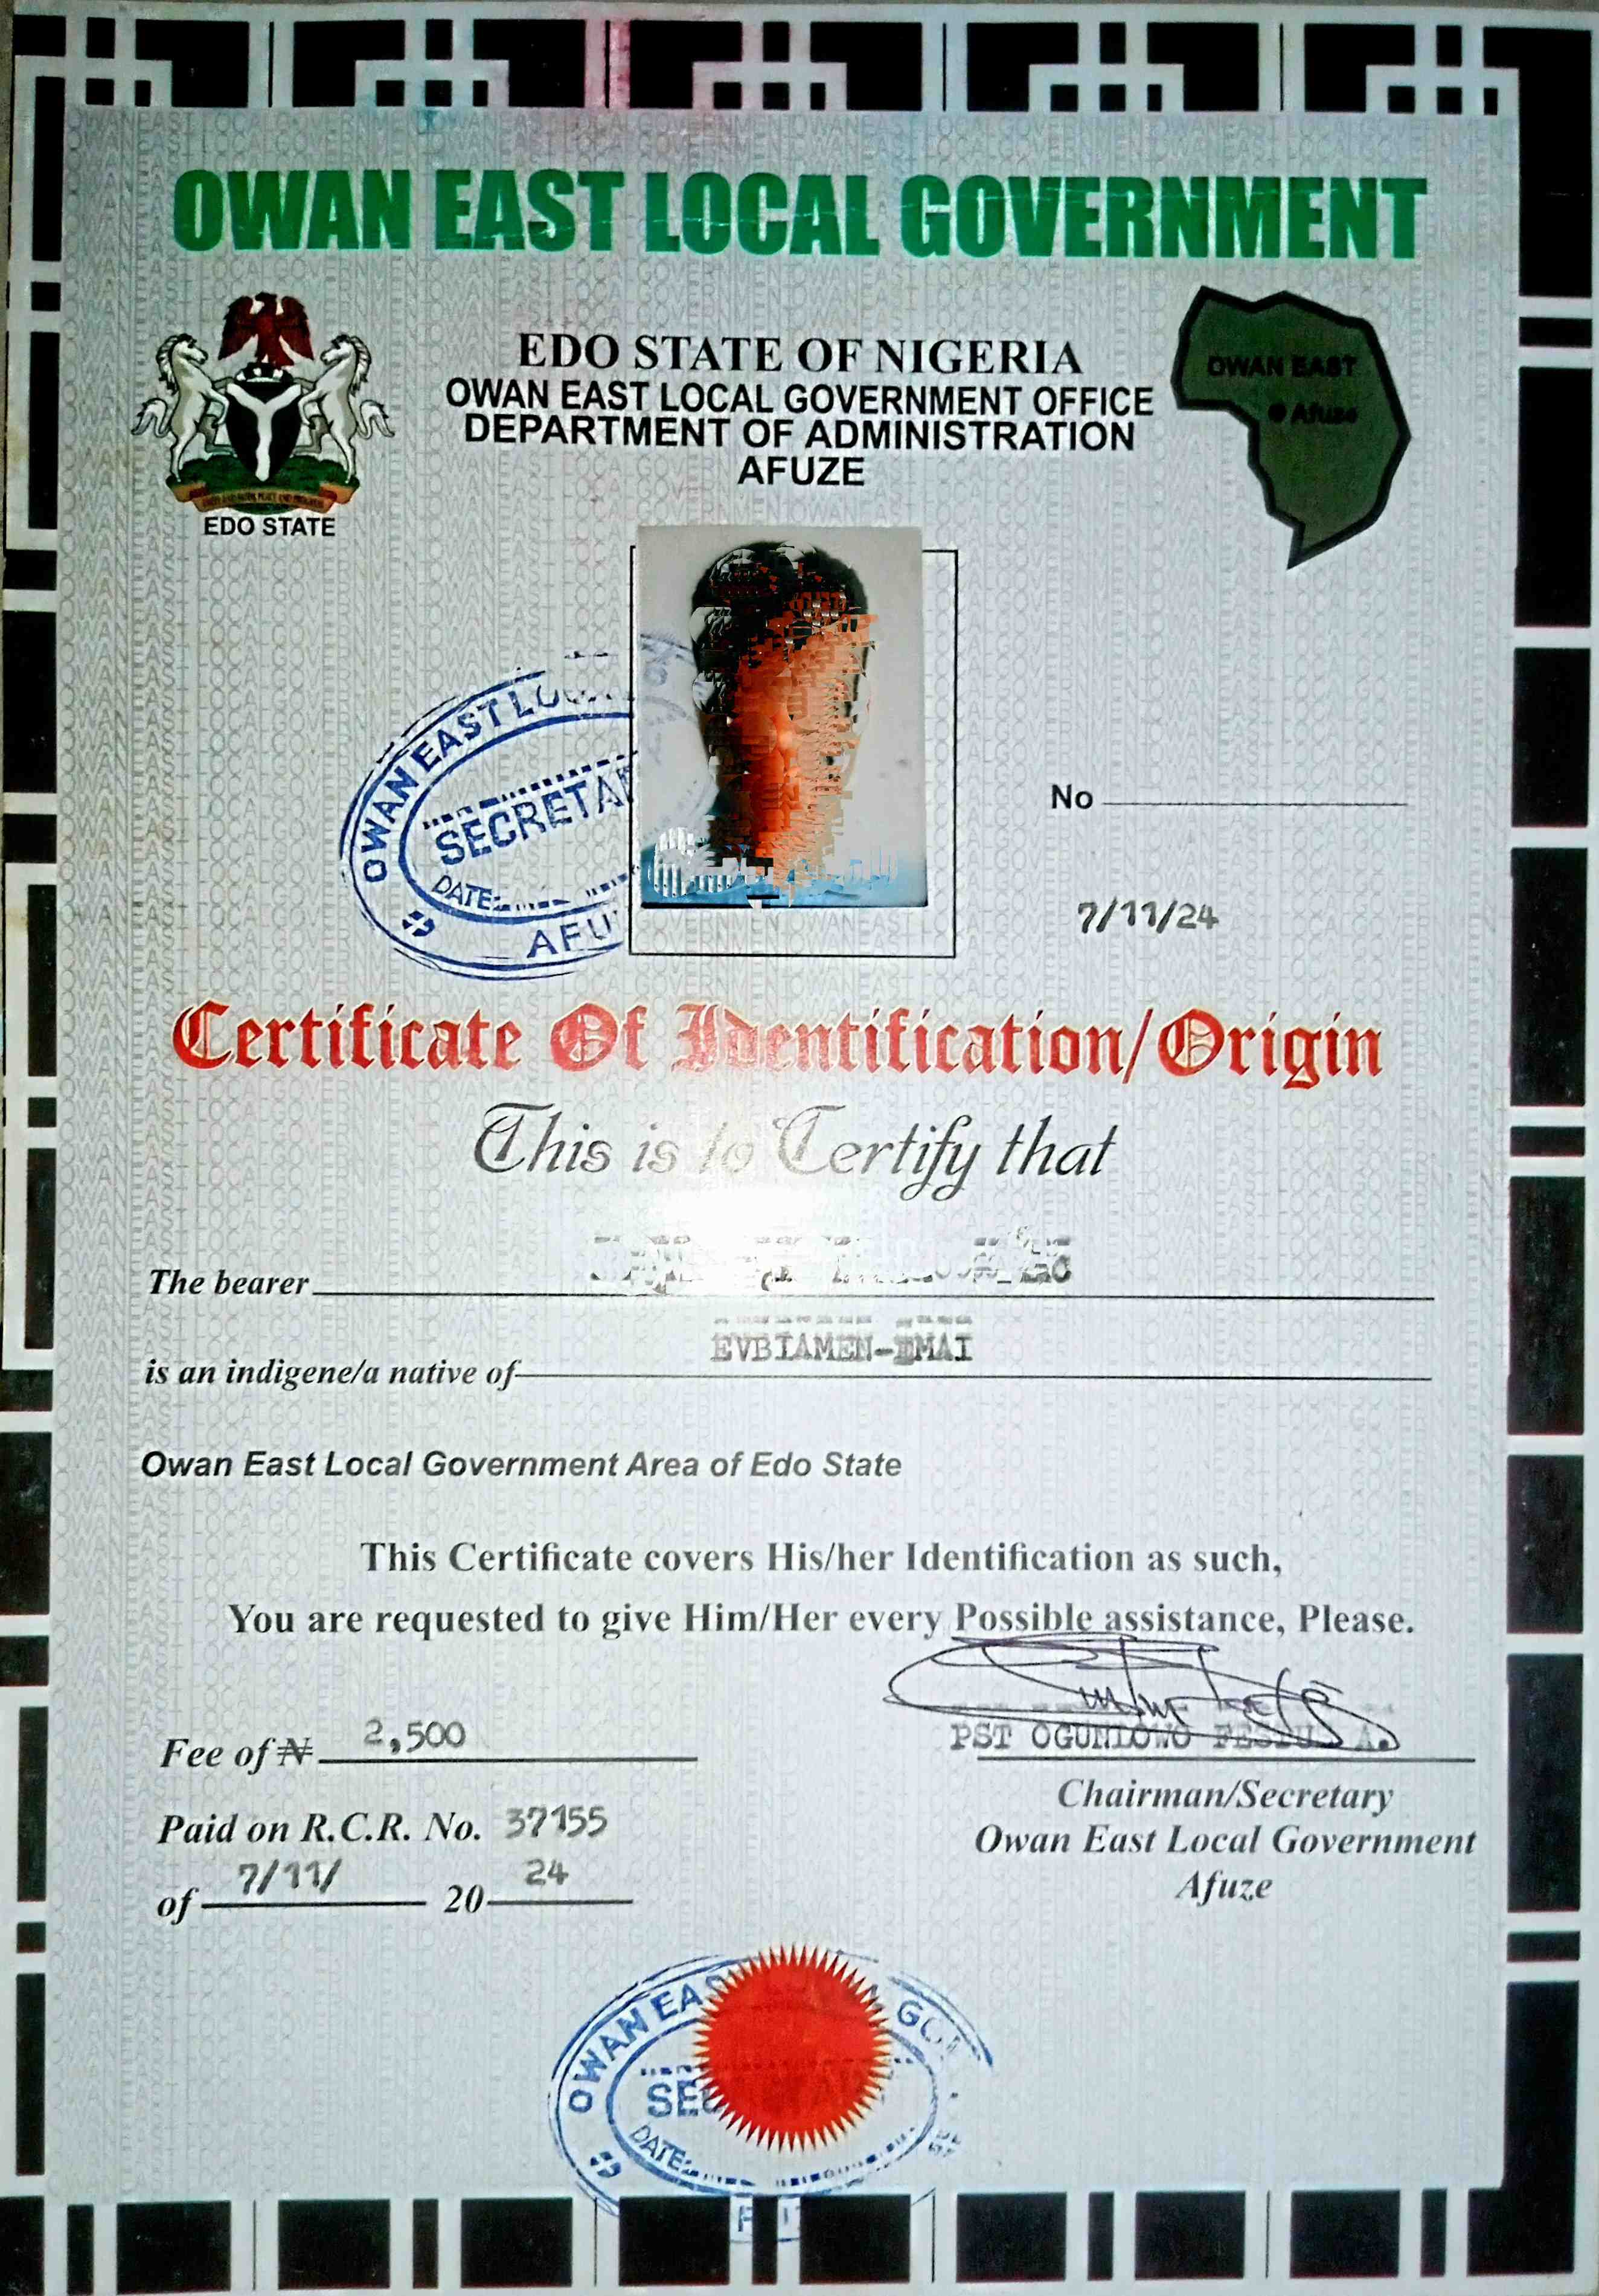 OWAN EAST LOCAL GOVERNMENT
EDO STATE OF NIGERIA
OWAN EAST LOCAL GOVERNMENT OFFICE
DEPARTMENT OF ADMINISTRATION
AFUZE
EDO STATE
OWAN EAST
Afuze
OWAN EAST
DATE:
No
7/11/24
Certificate Of Identification/Origin
This is to Certify that
The bearer
is an indigene/a native of EVBIAMEN-EMAI
Owan East Local Government Area of Edo State
This Certificate covers His/her Identification as such,
You are requested to give Him/Her every Possible assistance, Please.
Fee of ₦ 2,500
PST
Chairman/Secretary
Paid on R.C.R. No. 37155
Owan East Local Government
of 7/11/ 20 24
Afuze
OWAN
DATE: